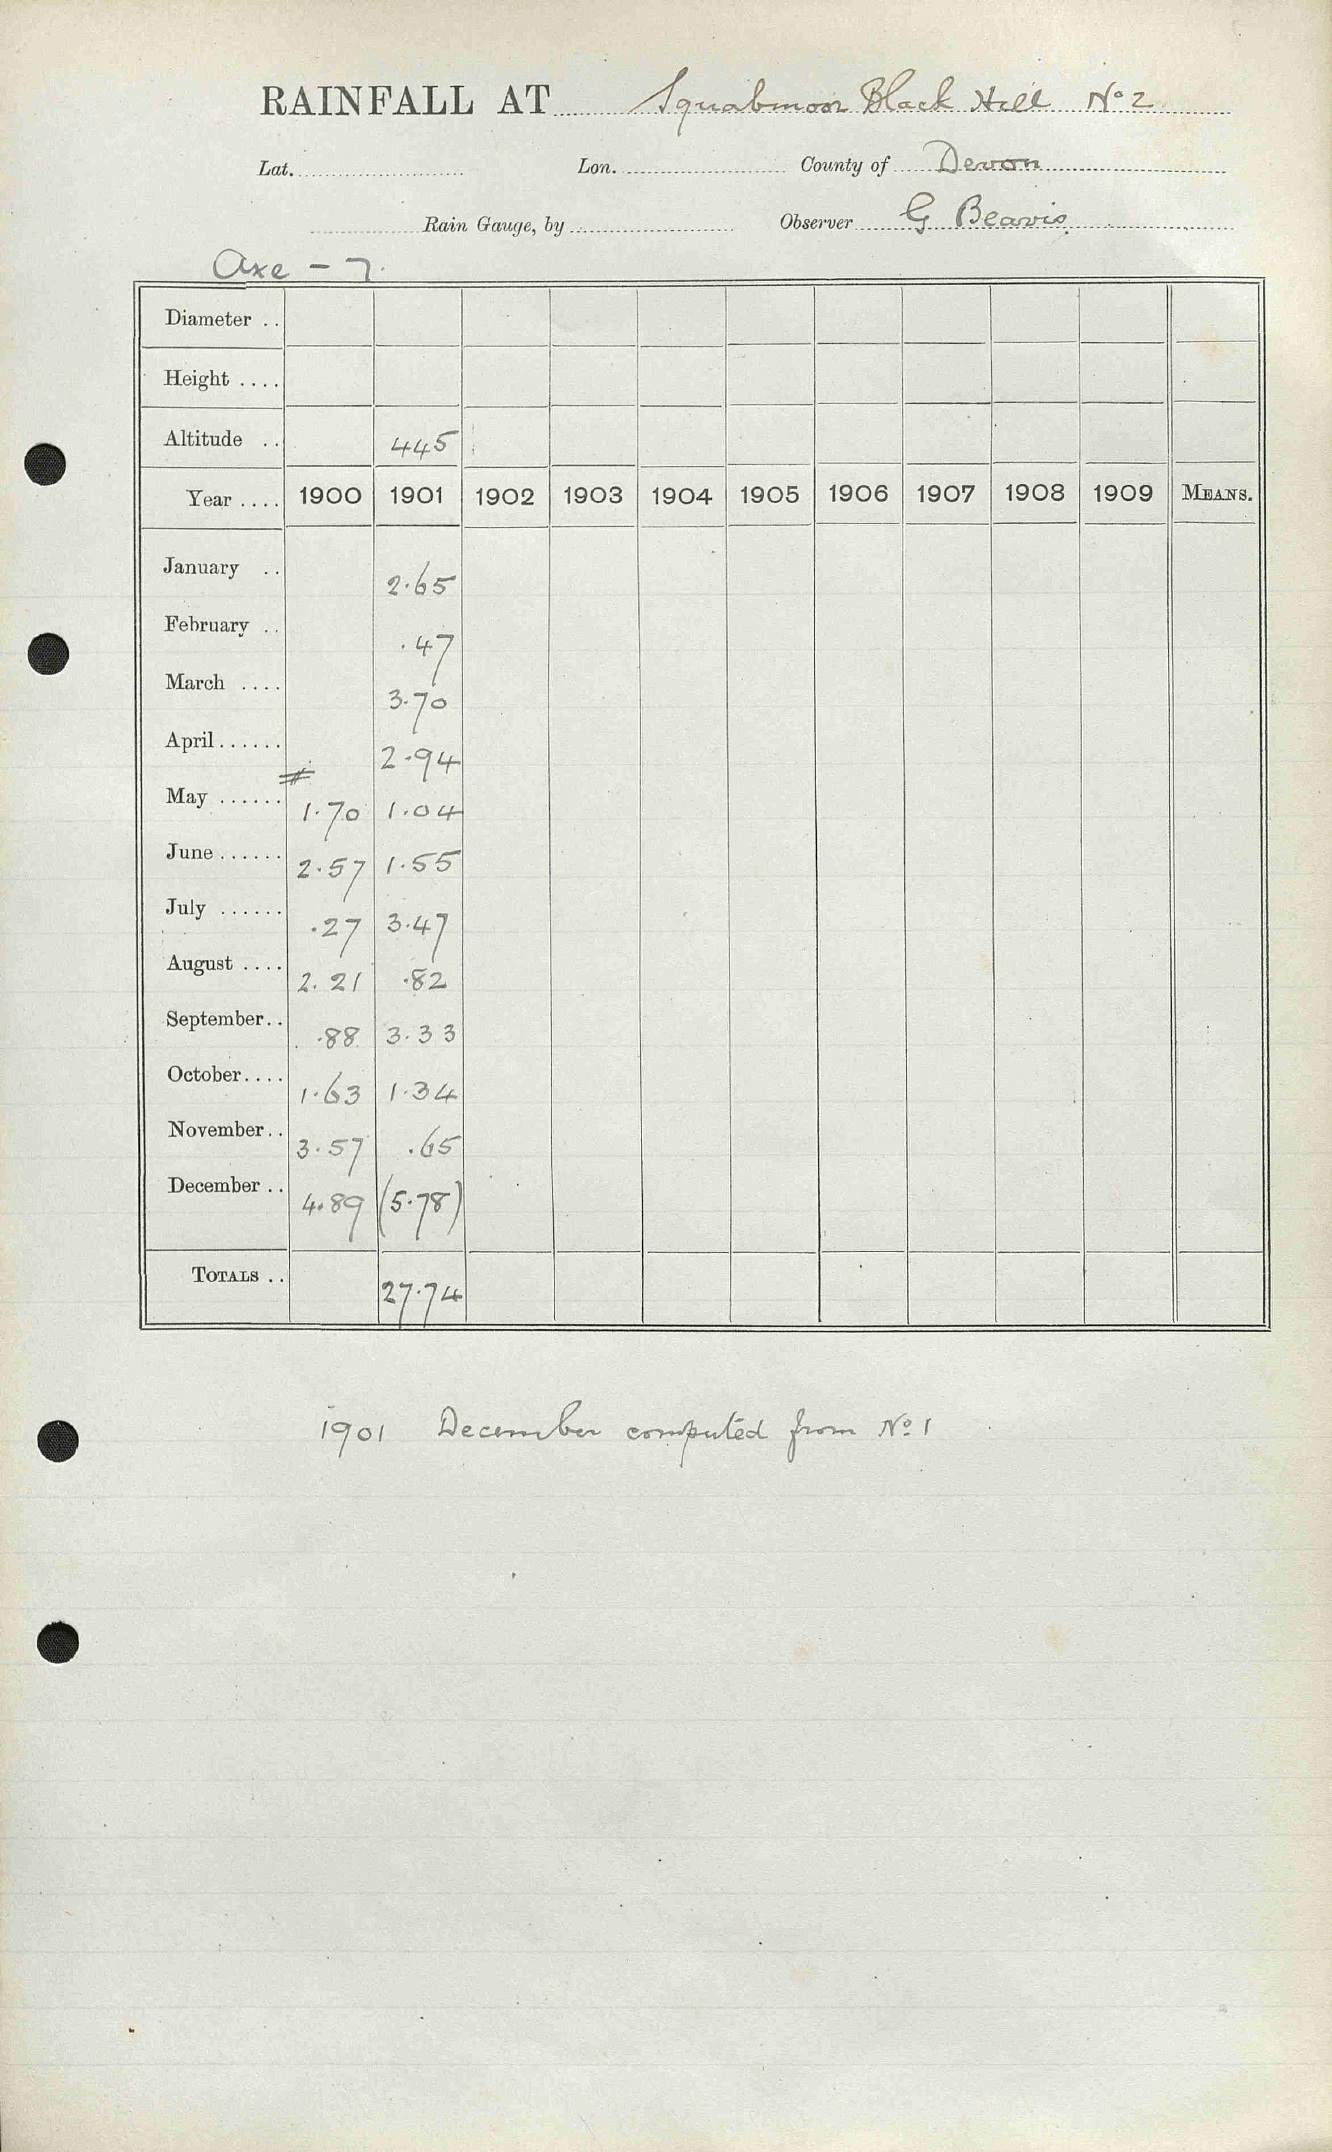 RAINFALL AT Squabmoor Black Hill No 2
Lat. Lon. County of Devon
Rain Gauge, by Observer G Beavis
Axe - 7.
Diameter ..
Height ....
Altitude .. 445
Year .... 1900 1901 1902 1903 1904 1905 1906 1907 1908 1909 MEANS.
January .. 2.65
February .. .47
March .... 3.70
April ...... 2.94
May ...... # 1.70 1.04
June ...... 2.57 1.55
July ...... .27 3.47
August .... 2.21 .82
September .. .88 3.33
October .... 1.63 1.34
November .. 3.57 .65
December .. 4.89 (5.78)
TOTALS .. 27.74
1901 December computed from No 1